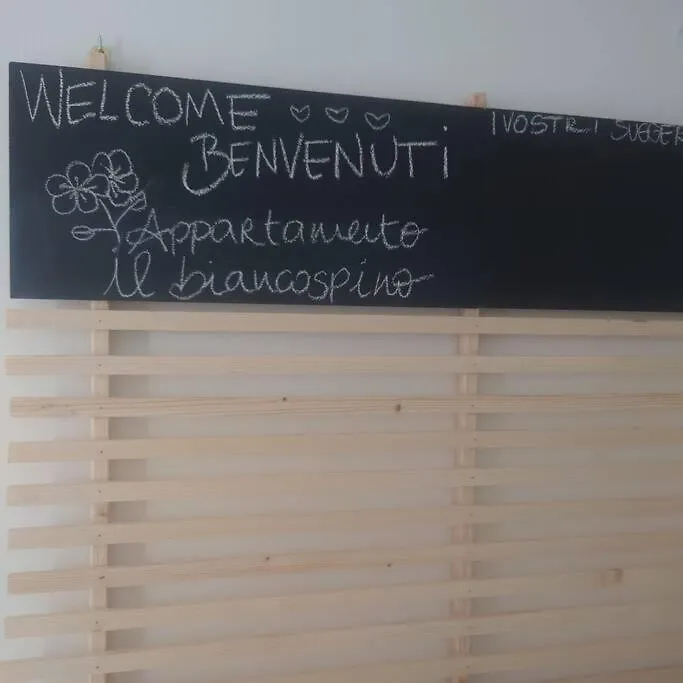 WELCOME
BENVENUTI
Appartamento
il biancospino
I VOSTRI SUGGER